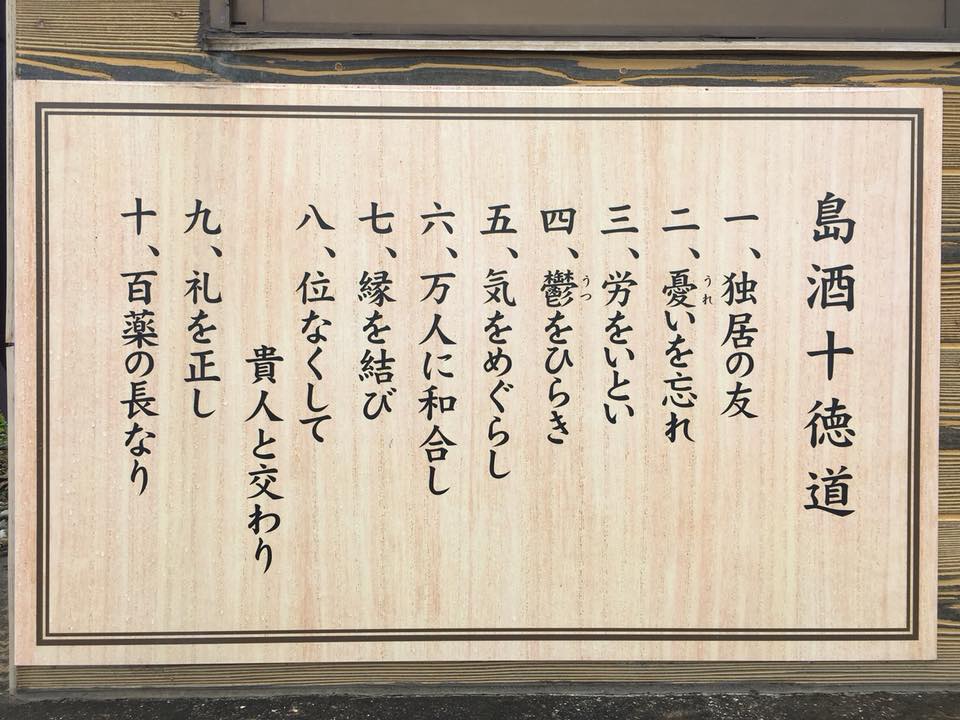 島酒十徳道
一、独居の友
二、憂いを忘れ
うれ
三、労をいとい
四、鬱をひらき
うつ
五、気をめぐらし
六、万人に和合し
七、縁を結び
八、位なくして
貴人と交わり
九、礼を正し
十、百薬の長なり